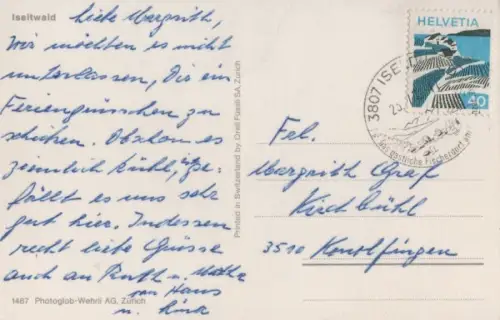 Iseltwald
Liebe Margrith,
Wir möchten es nicht
unterlassen, Dir ein
Feriengrüsschen zu
schicken. Obschon es
ziemlich kühl, ge-
fällt es uns sehr
gut hier. Indessen
recht liebe Grüsse
auch an Ruth u.
von Hans
u.
1487 Photoglob-Wehrli AG, Zürich
Printed in Switzerland by Orell Füssli SA, Zürich
HELVETIA
40
3807 ISEL
Frl.
Margrith Graf
Kirchbühl
3510 Konolfingen